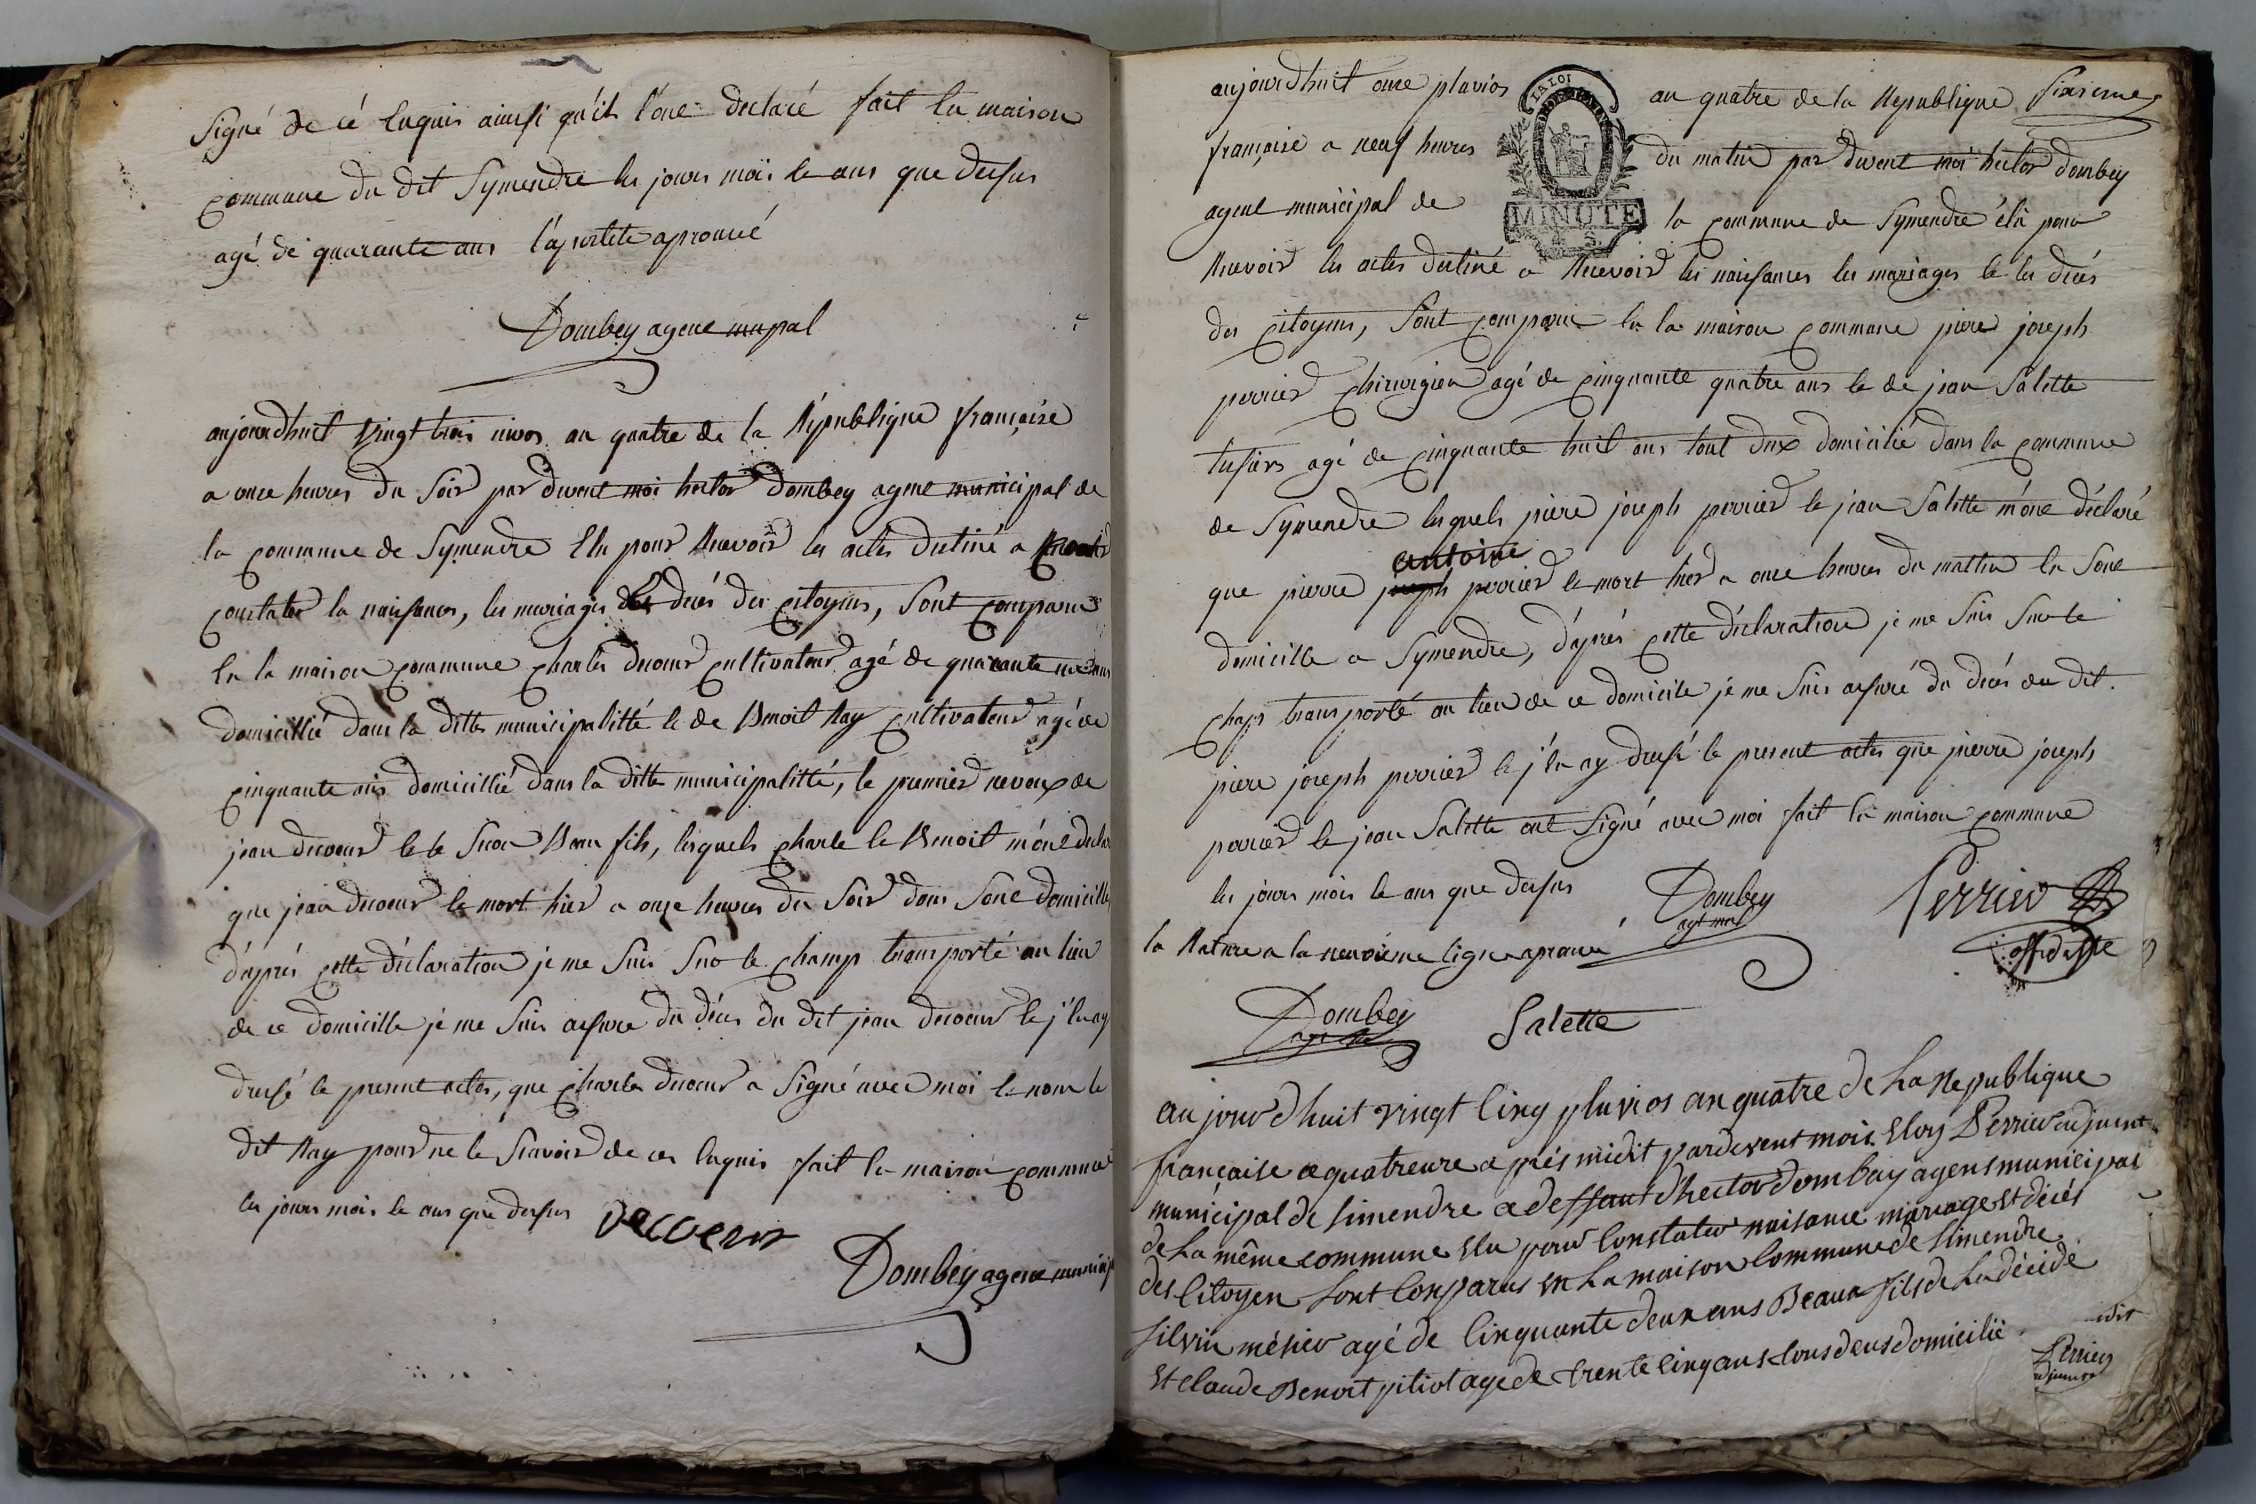 Signé de cé Enquis ainssi qu'ils l'one declaré fait En maison
commune du dit Symendre les jours mois Et ans que dessus
agé de quarante ans l'apostite aprouvé
Dombey agene mupal
aujourdhuit Vingt trois nivos an quatre de la Republique française
a onze heures du Soir par devent moi hector Dombey agene municipal de
la commune de Symendre Elu pour Recevoir les actes destiné a
constater la naissances, les mariages des decés des citoyens, Sont comparus
En la maison commune charles decoeur cultivateur agé de quarante
domicillié dans la ditte municipalitté Et de Benoit Ray cultivateur agé de
cinquante ans domicillié dans la ditte municipalitté, le premier neveux de
jean decoeur Et le Secon Beau fils, lesquels charle Et Benoit m'one declaré
que jean decoeur Et mort hier a onze heures du Soir dans Sone domicille
d'aprés cette déclaration je me Suis Sur le champ transporté au lieu
de ce domicille je me Suis assure du déces du dit jean decoeur Et j'En ay
dressé le present actes, que charle decoeur a Signé avec moi Et nom le
dit Ray pour ne le Scavoir de ces Enquis fait En maison commune
les jours mois Et ans que dessus Decoeur
Dombey agene municip
aujourdhuit onze pluvios an quatre de la Republique Sixieme
LA LOI
française a neuf heures du matin par devent moi hector Dombey
agene municipal de la commune de Symendre élu pour
MINUTE
Recevoir les actes destiné a Recevoir les naissances les mariages Et les decés
des citoyens, Sont comparue En la maison commune piere joseph
perrier chirurgien agé de cinquante quatre ans Et de jean Salette
tissiers agé de cinquante huit ans tout deux domicilié dans la commune
de Symendre lesquels piere joseph perrier Et jean Salette m'one déclaré
antoine
que pierre joseph perrier Et mort hier a onze heures du mattin En Sone
domicille a Symendre, d'aprés cette déclaration je me Suis Sur le
champ transporté au lieu de ce domicile je me Suis assuré du decés du dit
piere joseph perrier Et j'En ay dressé le present actes que pierre joseph
perrier Et jean Salette ont Signé avec moi fait En maison commune
les jours mois Et ans que dessus Dombey Perrier
agt mal
la Rature a la neuvieme ligne aprouvé
off de sté
Dombey Salette
aujourdhuit vingt Cinq pluvios an quatre de La Republique
française a quatreure aprés midit pardevent mois Eloy Perrier adjueint
municipal de Simendre a deffaut d'hector dombay agens municipal
de La même commune Elu pour Constater naisance mariage Et décés
des Citoyen Sont Conparus En La maison Commune de Simendre
Silvin mésier agé de Cinquante deux ans Beaux fils de La décéde
Et claude Benoit pitiot agé de trente Cinq ans tous deus domicilié
Perrier